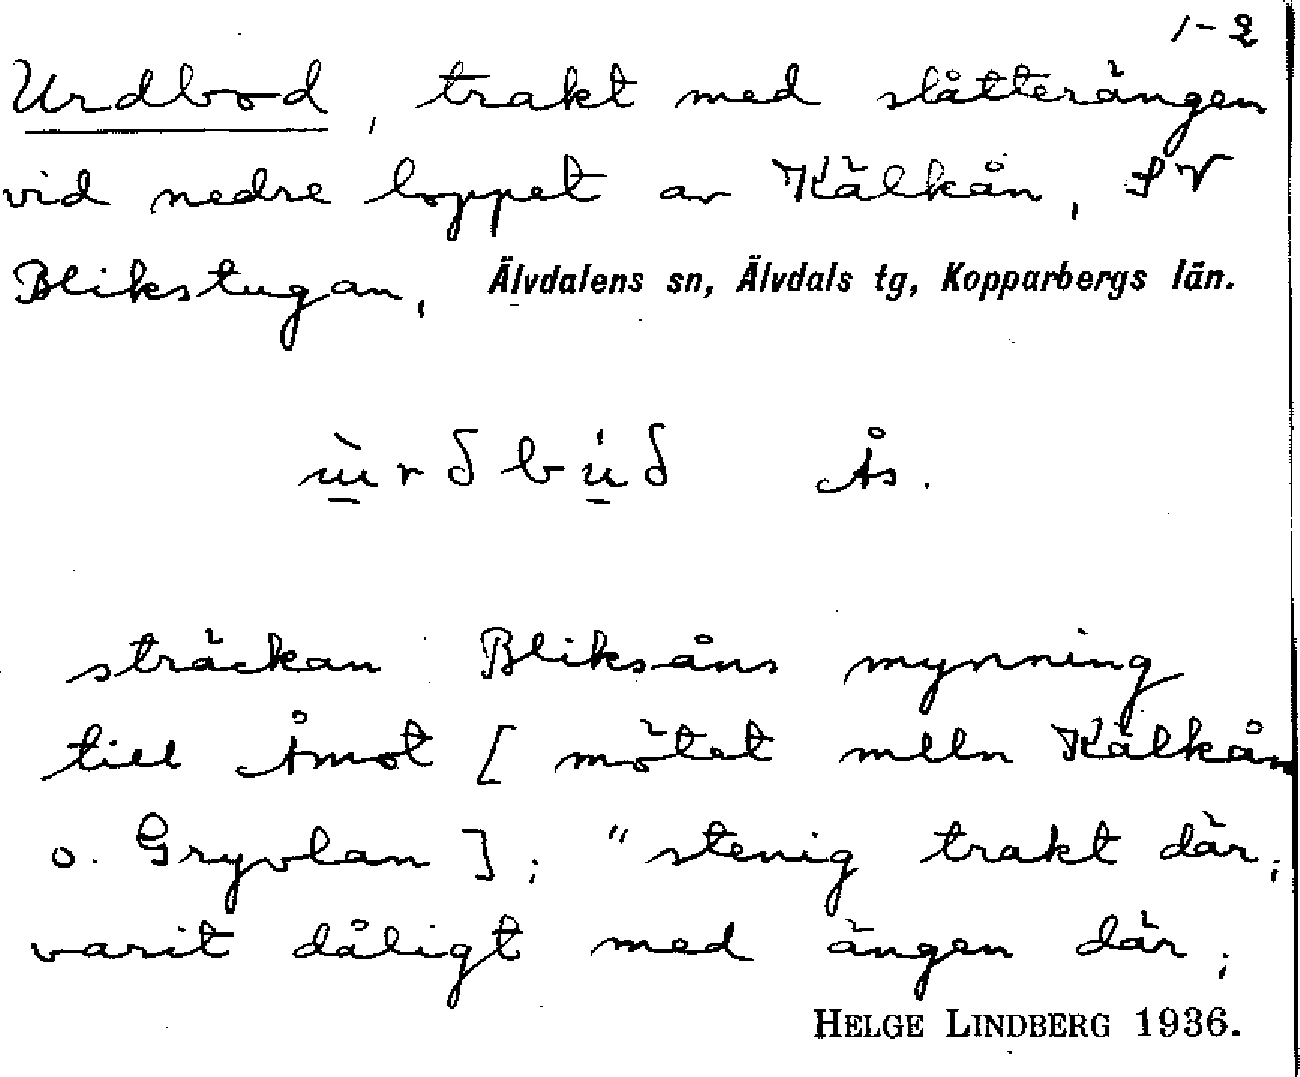 1-2
Urdbod, trakt med slåtterängen
vid nedre loppet av Kälkån, SV
Blikstugan, Älvdalens sn, Älvdals tg, Kopparbergs län.
Ås.
sträckan Bliksåns mynning
till Åmot [ mötet melln Kälkån
o. Gryvlan ]; "stenig trakt där;
varit dåligt med ängen där;
HELGE LINDBERG 1936.